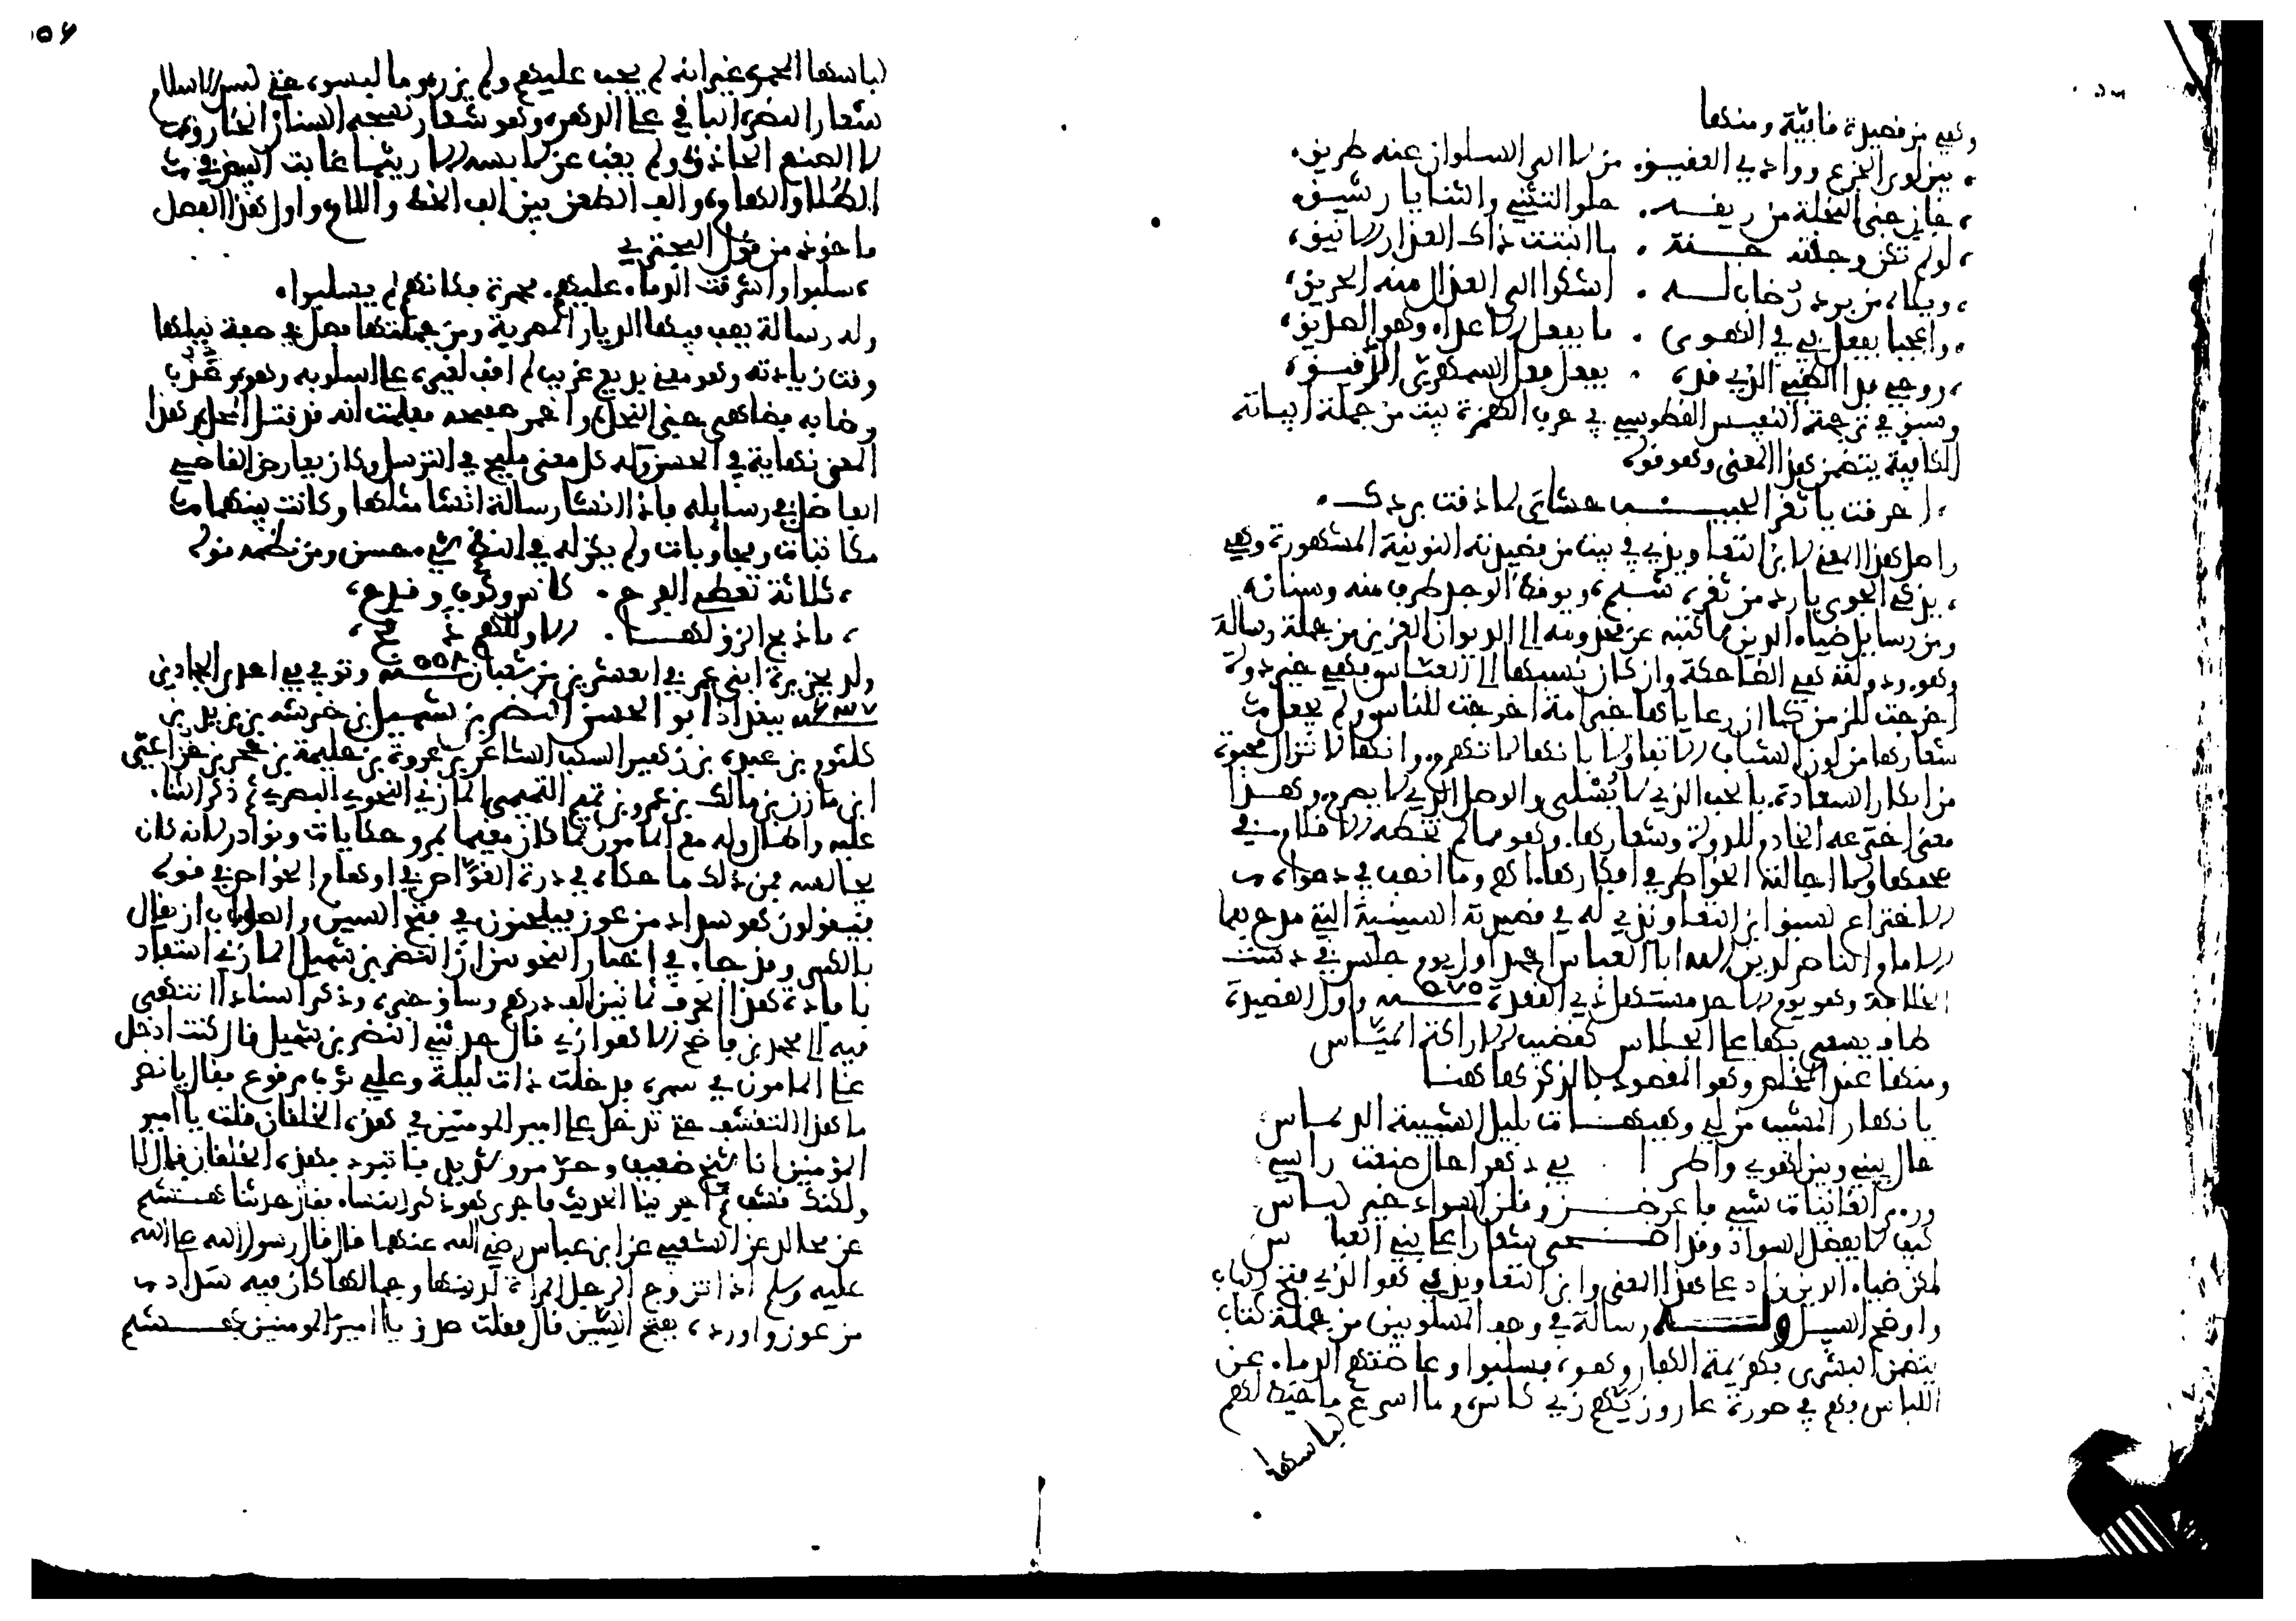 وهي من قصيدة قافية ومنها
بين لوى الجزع ووادي العقيق. من لا الى السلوان عنه طريق.
جاني جنى النحلة من ريقه. حلو التثني والثنايا رشيق.
لو لم تكن وجنته جنة. ما انبتت ذاك العذار الانيق،
ويلاه من برد رضاب له. اشكوا الى العذال منه الحريق،
واعجبا يفعل بي في الهوى. ما يفعل الاعداء وهو الصديق،
روحي فدا الظبي الذي قده. يفعل فعل السمهري الرقيق،
وسبق في ترجمة النفيس القطرسي في حرف الهمزة بيت من جملة ابياته
الكافية يتضمن هذا المعنى وهو قوله
احرقت يا ثغر الحبيب حشاى لما ذقت بردك.
واصل هذا المعنى لابن التعاويذي في بيت من قصيدته النونية المشهورة وهي
يذكي الجوى بارد من ثغره شبم، ويوقظ الوجد طرف منه وسنان.
ومن رسايل ضياء الدين ما كتبه عن مخدومه الى الديوان العزيز من جملة رسالة
وهو. ودولته هي الضاحكة وان كان نسبها الى العباس فهي خير دولة
اخرجت للزمن كما ان رعاياها خير امة اخرجت للناس ولم يجعل
شعارها من لون الشباب الا تفاولا بانها لا تهرم، وانها لا تزال محبوة
من ابكار السعادة. بالحب الذي لا يسلى والوصل الذي لا يصرم. وهذا
معنى اخترعه الخادم للدولة وشعارها، وهو مما لم تخطه الاقلام في
صحفها ولا اجالته الخواطر في افكارها. اهـ وما انصف في دعواه
الاختراع لسبق ابن التعاويذي له في قصيدته السينية التي مدح بها
الامام الناصر لدين الله ابا العباس احمد اول يوم جلس في دست
الخلافة وهو يوم الاحد مستهل ذي القعدة سنة ٥٧٥ واول القصيدة
طاف يسعى بها على الجلاس كقضيب الاراكة المياس
ومنها عند المخلص وهو المقصود بالذكر هاهنا
يا نهار المشيب من لي وهيهات بليل الشبيبة الديماس
حال بيني وبين لهوي واطرابي دهر احال صبغة راسي
وراى الغانيات شيبي فاعرضن وقلن السواد خير لباس
كيف لا يفضل السواد وقد اضحى شعارا على بني العباس
لكن ضياء الدين زاد على هذا المعنى وابن التعاويذي هو الذي فتح الباب
واوضح السبيل وله رسالة في وصف المسلوبين من جملة كتاب
يتضمن البشرى بهزيمة الكفار وهو، فسلبوا وعاضتهم الدماء عن
اللباس فهم في صورة عار وزيهم زي كاس، وما اسرع ما خيط لهم
لباسها
لباسها المحمر غير انه لم يجب عليهم ولم يزرر وما لبسوه حتى لبس الاسلام
شعار النصر الباقي على الدهر، وهو شعار نسجه السنان الخارق
لا الصنع الحاذق ولم يغب عن لابسه الا ريثما غابت البيض في
الطلا والهام، والف الطعن بين الف الخط واللام واول هذا الفصل
ماخوذ من قول البحتري
سلبوا واشرقت الدماء عليهم. محمرة فكانهم لم يسلبوا.
وله رسالة يصف فيها الديار المصرية ومن جملتها فصل في صفة نيلها
وقت زيادته وهو معنى بديع غريب لم اقف لغيره على اسلوبه وهو، عذب
رضابه فضاهى جنى النحل، واحمر صفيحه فعلمت انه قد قتل المحل، وهذا
المعنى نهاية في الحسن وله كل معنى مليح في الترسل وكان يعارض القاضي
الفاضل في رسايله فاذا انشا رسالة انشا مثلها وكانت بينهما
مكاتبات ومجاوبات ولم يكن له في النظم شيء حسن ومن نظمه قوله
ثلاثة تعطي الفرح. كاس وكوب وقدح،
ما ذبح الزق لها. الا وللهم ذبح،
ولد بجزيرة ابن عمر في العشرين من شعبان سنة ٥٥٨ وتوفي في احدى الجمادين
سنة ٦٣٧ ببغداذ ابو الحسن النضر بن شميل بن خرشه بن يزيد بن
كلثوم بن عبدة بن زهير السكب الشاعر بن عروة بن حليمة بن حجر بن خزاعي
ابن مازن بن مالك بن عمرو بن تميم التميمي المازني النحوي البصري ذكر الثناء
عليه واطال وله مع المامون لما كان مقيما بمرو حكايات ونوادر لانه كان
يجالسه فمن ذلك ما حكاه في درة الغواص في اوهام الخواص في قوله
فيقولون هو سداد من عوز فيلحنون في فتح السين والصواب ان يقال
بالكسر وقد جاء في اخبار النحويين ان النضر بن شميل المازني استفاد
بافادة هذا الحرف ثمانين الف درهم وساق خبره، وذكر اسنادا انتهى
فيه الى محمد بن ناصح الاهوازي قال حدثني النضر بن شميل قال كنت ادخل
على المامون في سمره، فدخلت ذات ليلة وعلي ثوب مرقوع فقال يا نضر
ما هذا التقشف حتى تدخل على امير المومنين في هذه الخلقان قلت يا امير
المومنين انا شيخ ضعيف وحر مرو شديد فاتبرد بهذه الخلقان قال لا
ولكنك قشف ثم اجرينا الحديث فاجرى هو ذكر النساء، فقال حدثنا هشيم
عن مجالد عن الشعبي عن ابن عباس رضي الله عنهما قال قال رسول الله صلى الله
عليه وسلم اذا تزوج الرجل المراة لدينها وجمالها كان فيه سداد
من عوز واورده بفتح السين قال فقلت صدق يا امير المومنين هشيم